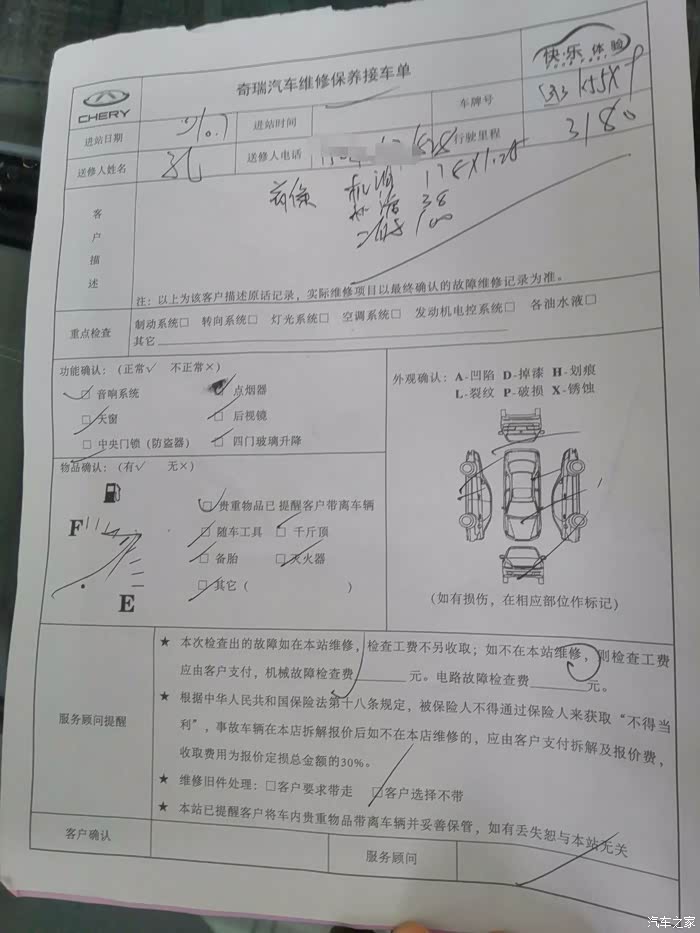 奇瑞汽车维修保养接车单
快乐体验
CHERY
进站日期 进站时间 车牌号
送修人姓名 孔 送修人电话 行驶里程 3180
客户描述
机油 178×1.25
38
100
注：以上为该客户描述原话记录，实际维修项目以最终确认的故障维修记录为准。
重点检查 制动系统□ 转向系统□ 灯光系统□ 空调系统□ 发动机电控系统□ 各油水液□
其它
功能确认：（正常√ 不正常×）
□音响系统 □点烟器
□天窗 □后视镜
□中央门锁（防盗器） □四门玻璃升降
外观确认：A-凹陷 D-掉漆 H-划痕
L-裂纹 P-破损 X-锈蚀
（如有损伤，在相应部位作标记）
物品确认：（有√ 无×）
□贵重物品已提醒客户带离车辆
□随车工具 □千斤顶
□备胎 □灭火器
□其它（ ）
F
E
服务顾问提醒
★ 本次检查出的故障如在本站维修，检查工费不另收取；如不在本站维修，则检查工费
应由客户支付，机械故障检查费 元。电路故障检查费 元。
★ 根据中华人民共和国保险法第十八条规定，被保险人不得通过保险人来获取“不得当
利”，事故车辆在本店拆解报价后如不在本店维修的，应由客户支付拆解及报价费，
收取费用为报价定损总金额的30%。
★ 维修旧件处理：□客户要求带走 □客户选择不带
★ 本站已提醒客户将车内贵重物品带离车辆并妥善保管，如有丢失恕与本站无关
客户确认 服务顾问
汽车之家